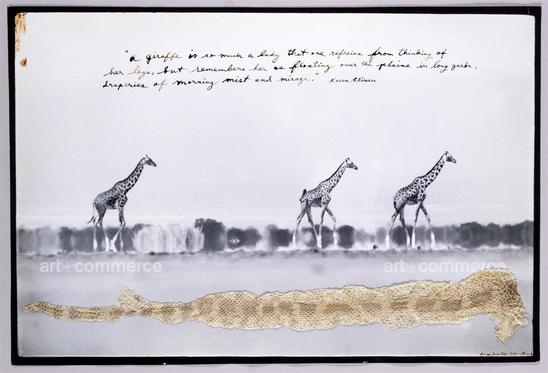 "A giraffe is so much a lady that one refrains from thinking of
her legs, but remembers her as floating over the plains in long garbs,
draperies of morning mist and mirage." Karen Blixen
art+commerce art+commerce